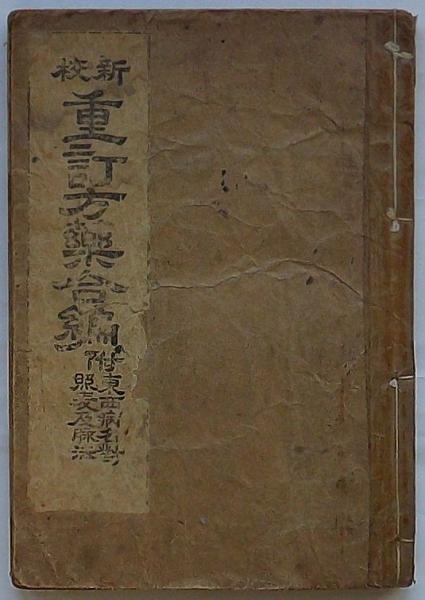 新校
重訂方藥合編
附
東西病名對
照表及脈法